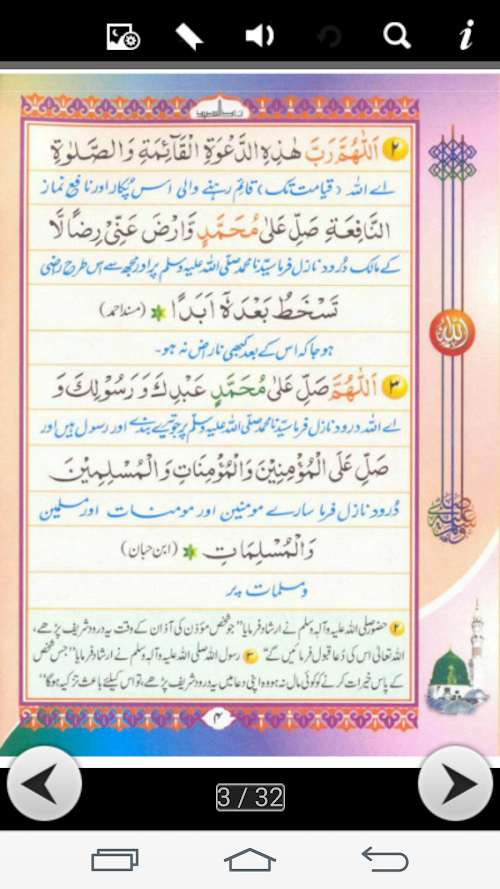 ۲ اَللّٰهُمَّ رَبَّ هٰذِهِ الدَّعْوَةِ الْقَآئِمَةِ وَالصَّلٰوةِ
اے اللہ (قیامت تک) قائم رہنے والی اس پکار اور نافع نماز
النَّافِعَةِ صَلِّ عَلٰى مُحَمَّدٍ وَّارْضَ عَنِّیْ رِضًا لَّا
کے مالک درُود نازل فرما سیّدنا محمد صلی اللہ علیہ وسلم پر اور مجھ سے اس طرح راضی
تَسْخَطُ بَعْدَهٗ اَبَدًا (مسند احمد)
ہو جا کہ اس کے بعد کبھی ناراض نہ ہو۔
۳ اَللّٰهُمَّ صَلِّ عَلٰى مُحَمَّدٍ عَبْدِكَ وَرَسُوْلِكَ وَ
اے اللہ درود نازل فرما سیّدنا محمد صلی اللہ علیہ وسلم پر جو تیرے بندے اور رسول ہیں اور
صَلِّ عَلَى الْمُؤْمِنِيْنَ وَالْمُؤْمِنَاتِ وَالْمُسْلِمِيْنَ
دُرود نازل فرما سارے مومنین اور مومنات اور مسلمین
وَالْمُسْلِمَاتِ (ابن حبان)
و مسلمات پر
۲ حضور صلی اللہ علیہ وآلہ وسلم نے ارشاد فرمایا "جو شخص مؤذن کی آذان کے وقت یہ درود شریف پڑھے،
اللہ تعالیٰ اس کی دُعا قبول فرمائیں گے" ۳ رسول اللہ صلی اللہ علیہ وآلہ وسلم نے ارشاد فرمایا "جس شخص
کے پاس خیرات کرنے کو کوئی مال نہ ہو وہ اپنی دعا میں یہ درود شریف پڑھے، تو اس کیلئے باعث تزکیہ ہوگا"
۴
3 / 32